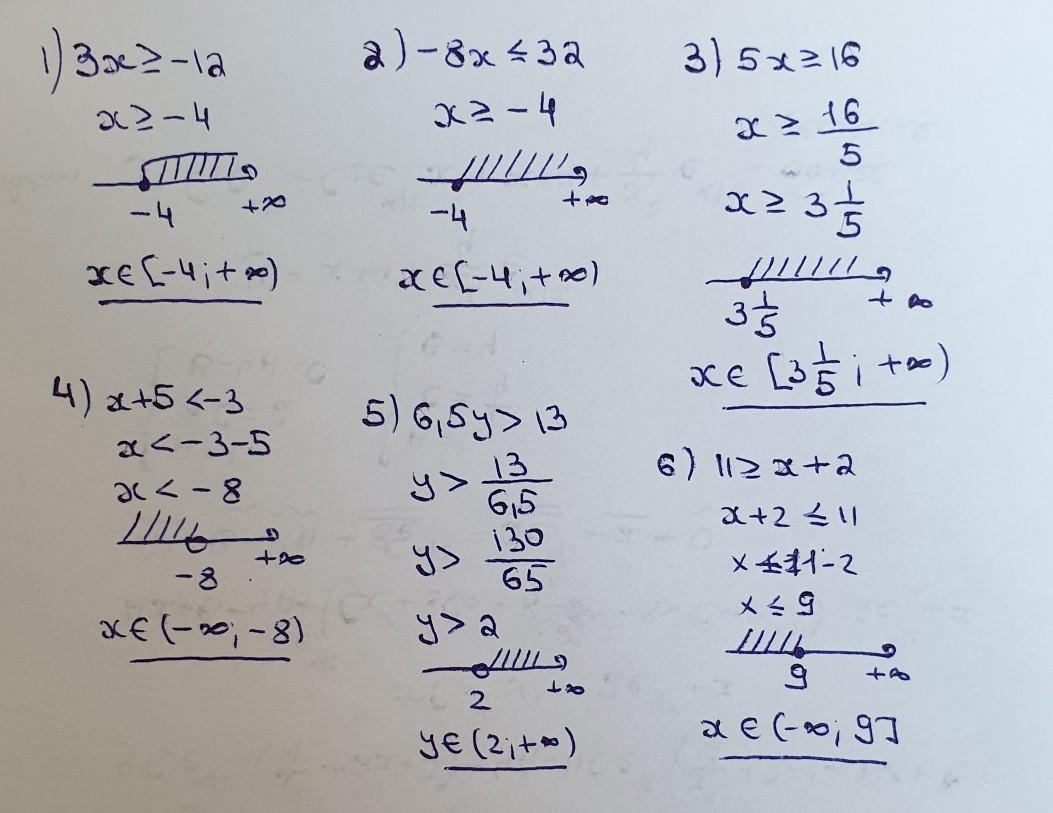 1) 3x ≥ -12
x ≥ -4
-4 +∞
x∈[-4;+∞)
2) -8x ≤ 32
x ≥ -4
-4 +∞
x∈[-4;+∞)
3) 5x ≥ 16
x ≥ 16/5
x ≥ 3 1/5
3 1/5 +∞
x∈[3 1/5; +∞)
4) x+5 <-3
x <-3-5
x < -8
-8 +∞
x∈(-∞;-8)
5) 6,5y > 13
y > 13/6,5
y > 130/65
y > 2
2 +∞
y∈(2;+∞)
6) 11 ≥ x+2
x+2 ≤ 11
x ≤ 11-2
x ≤ 9
9 +∞
x∈(-∞; 9]